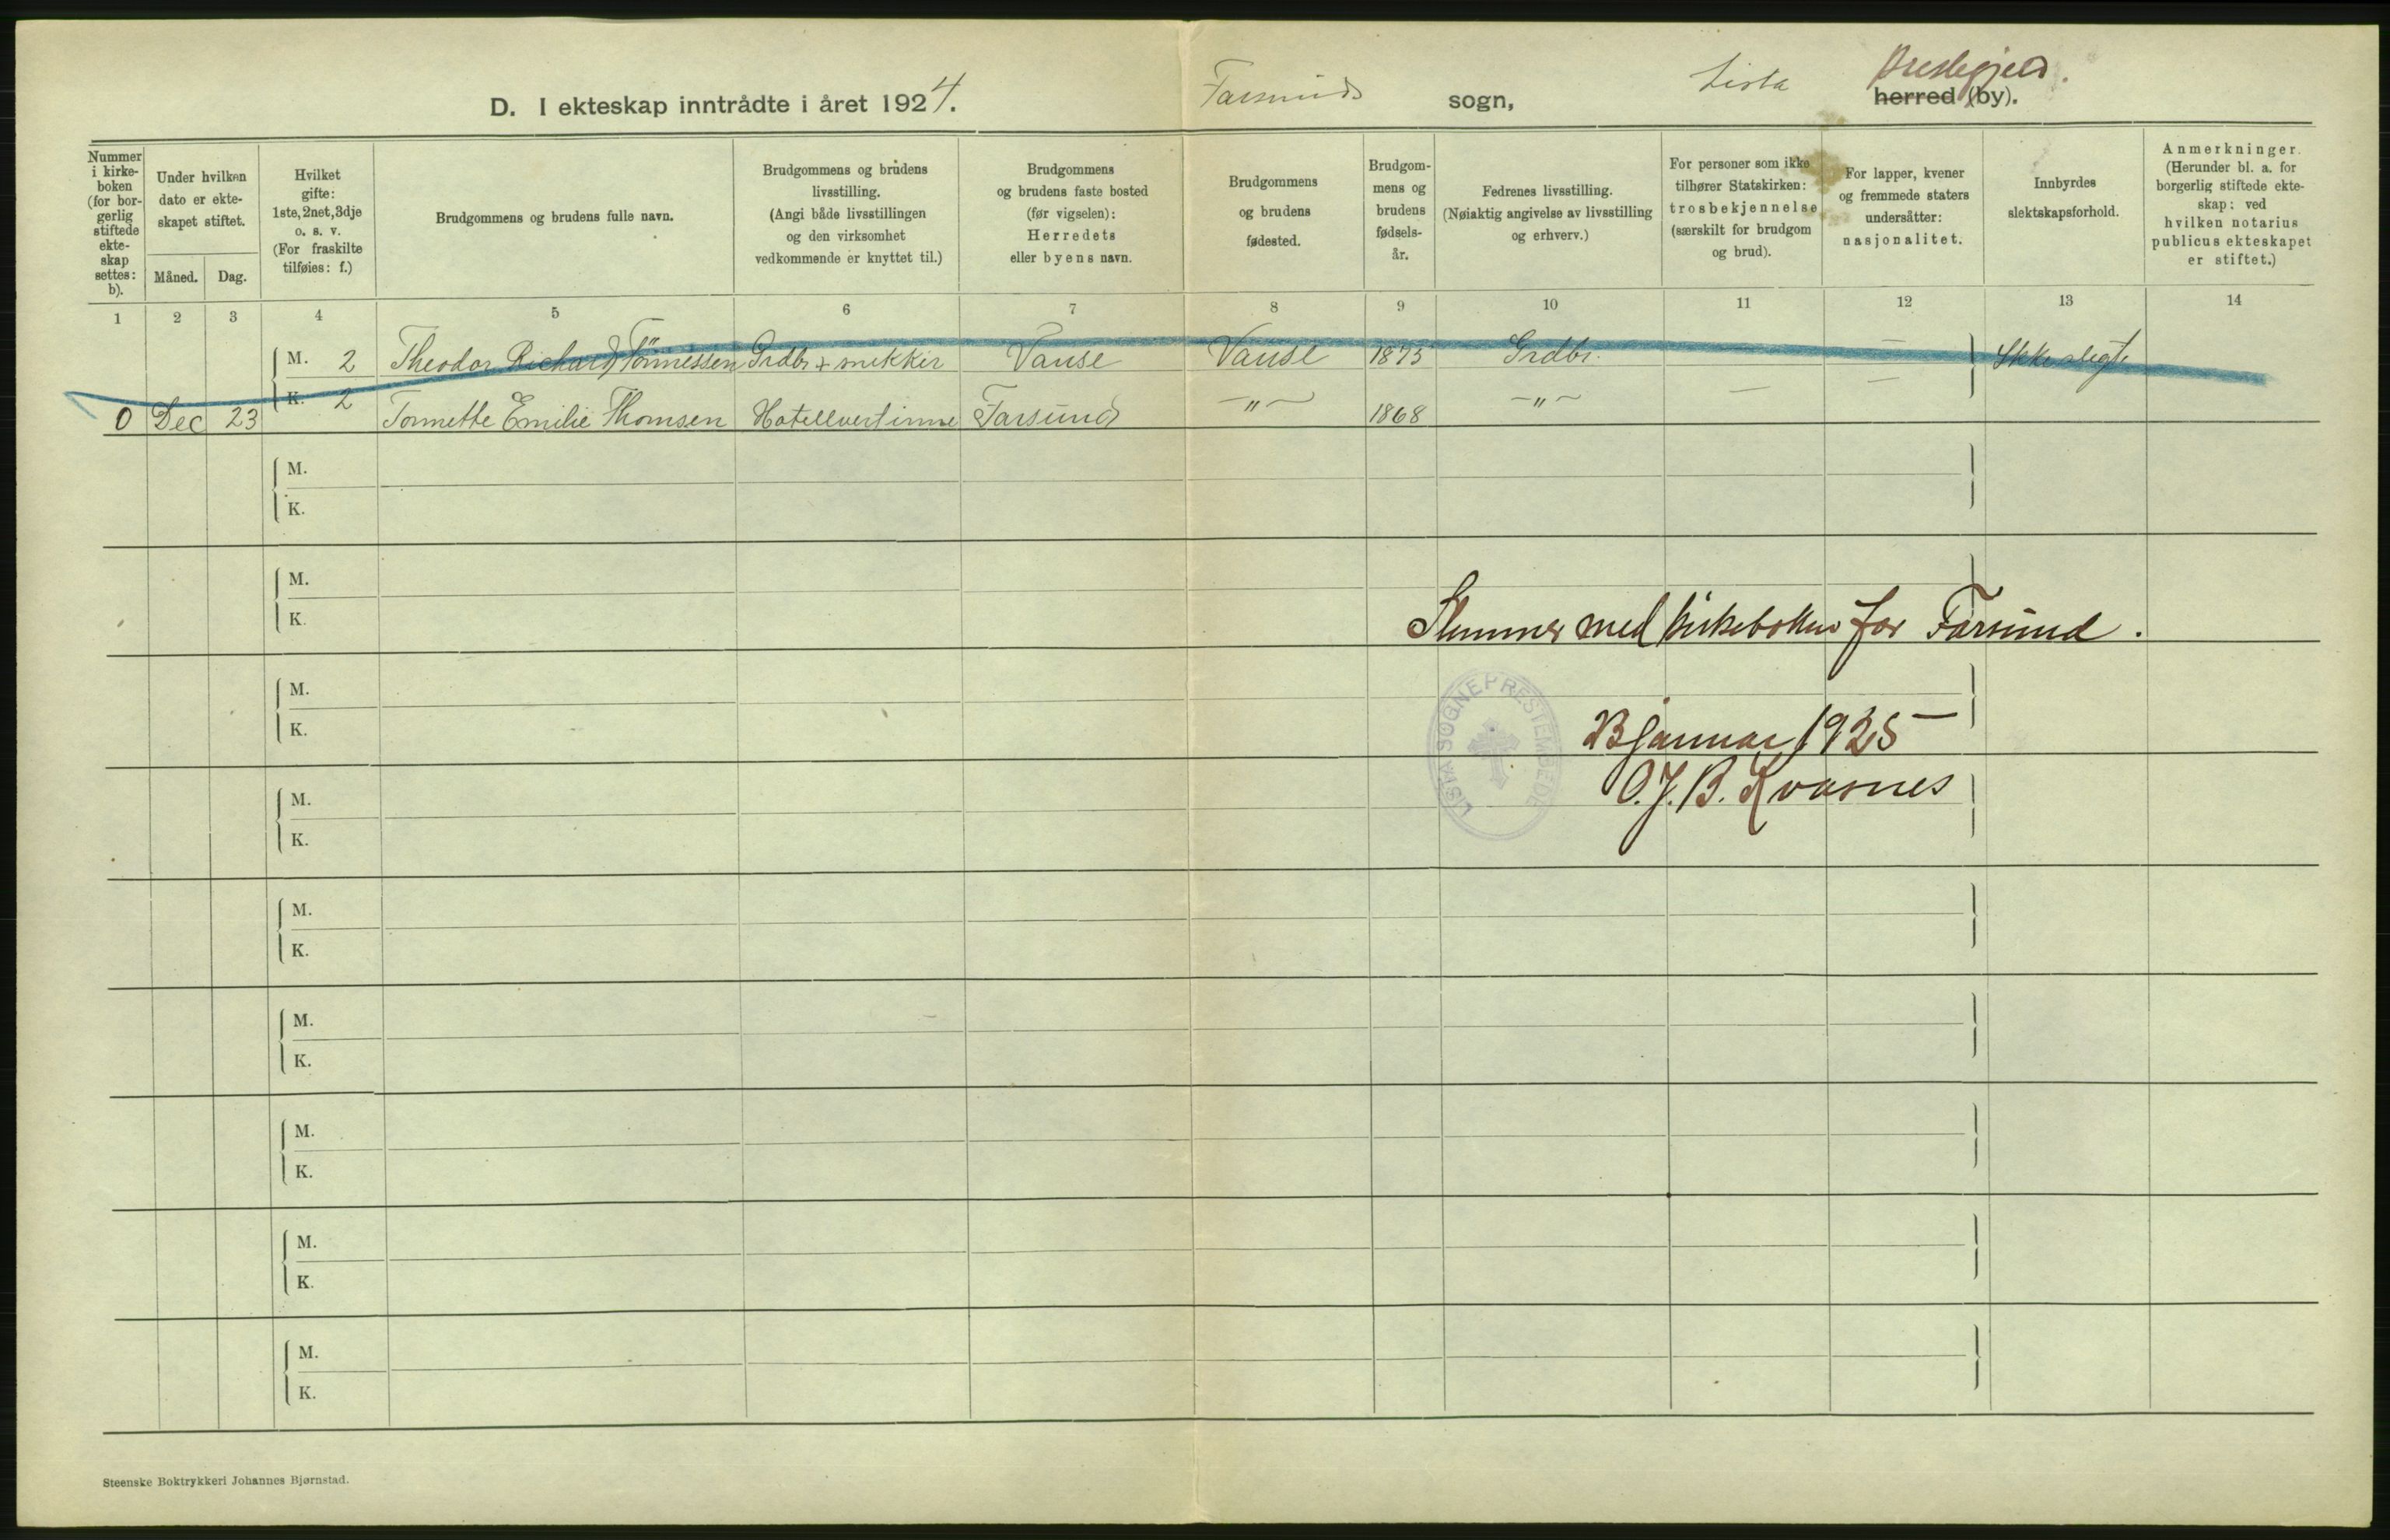 D. I ekteskap inntrådte i året 1924.
Farsunds sogn, Lista Prestegjeld. herred (by).
Nummer i kirkeboken (for borgerlig stiftede ekteskap settes: b).
Under hvilken dato er ekteskapet stiftet.
Måned. Dag.
Hvilket gifte: 1ste, 2net, 3dje o. s. v. (For fraskilte tilføies: f.)
Brudgommens og brudens fulle navn.
Brudgommens og brudens livsstilling. (Angi både livsstillingen og den virksomhet vedkommende er knyttet til.)
Brudgommens og brudens faste bosted (før vigselen): Herredets eller byens navn.
Brudgommens og brudens fødested.
Brudgommens og brudens fødselsår.
Fedrenes livsstilling. (Nøiaktig angivelse av livsstilling og erhverv.)
For personer som ikke tilhører Statskirken: trosbekjennelse (særskilt for brudgom og brud).
For lapper, kvener og fremmede staters undersåtter: nasjonalitet.
Innbyrdes slektskapsforhold.
Anmerkninger. (Herunder bl. a. for borgerlig stiftede ekteskap: ved hvilken notarius publicus ekteskapet er stiftet.)
1 2 3 4 5 6 7 8 9 10 11 12 13 14
M. 2 Theodor Richard Tönnessen Grdbr + snekker Vanse Vanse 1875 Grdbr. — — Ikke slegt
0 Dec 23 K. 2 Tonnette Emilie Thomsen Hotellvertinne Farsund —"— 1868 —"— — —
M.
K.
M.
K.
Stemmer med kirkeboken for Farsund.
M.
K.
LISTA SOGNEPRESTEMBEDE
23 januar 1925
O. J. B. Kvasnes
M.
K.
M.
K.
M.
K.
M.
K.
M.
K.
M.
K.
Steenske Boktrykkeri Johannes Bjørnstad.